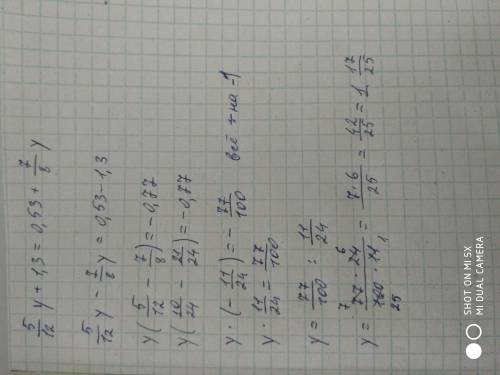 5/12 y + 1,3 = 0,53 + 7/8 y
5/12 y - 7/8 y = 0,53 - 1,3
y (5/12 - 7/8) = -0,77
y (10/24 - 21/24) = -0,77
y · (- 11/24) = - 77/100 всё * на -1
y · 11/24 = 77/100
y = 77/100 : 11/24
y = 77 · 24 / 100 · 11 = 7 · 6 / 25 = 42/25 = 1 17/25
7 6
25 1
SHOT ON MI 5X
MI DUAL CAMERA